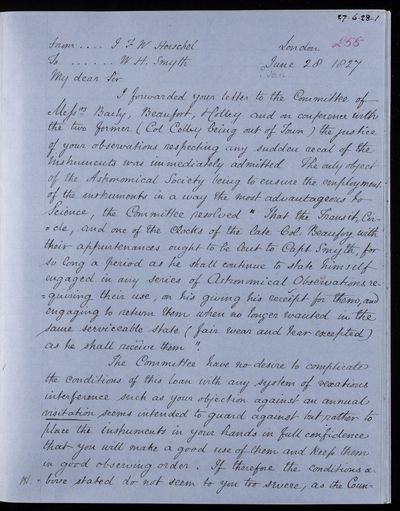 27-6-28-1
From .... J F W Herschel London 258
To ...... W. H. Smyth June 28 1827
? Jan
My dear Sir
I forwarded your letter to the Committee of
Messrs Baily, Beaufort, Colby and on conference with
the two former (Col Colby being out of Town) the justice
of your observations respecting any sudden recal of the
Instruments was immediately admitted. The only object
of the Astronomical Society being to ensure the employment
of the instruments in a way the most advantageous to
Science, the Committee resolved "That the Transit, Cir-
=cle, and one of the Clocks of the late Col. Beaufoy with
their appurtenances ought to be lent to Capt. Smyth, for
so long a period as he shall continue to state himself
engaged in any series of Astronomical Observations re-
=quiring their use, on his giving his receipt for them, and
engaging to return them when no longer wanted in the
same serviceable state (fair wear and tear excepted)
as he shall receive them".
The Committee have no desire to complicate
the conditions of this loan with any system of vexatious
interference such as your objection against an annual
visitation seems intended to guard against but rather to
place the instruments in your hands in full confidence
that you will make a good use of them and keep them
in good observing order. If therefore the conditions a-
=bove stated do not seem to you too severe, as the Coun-